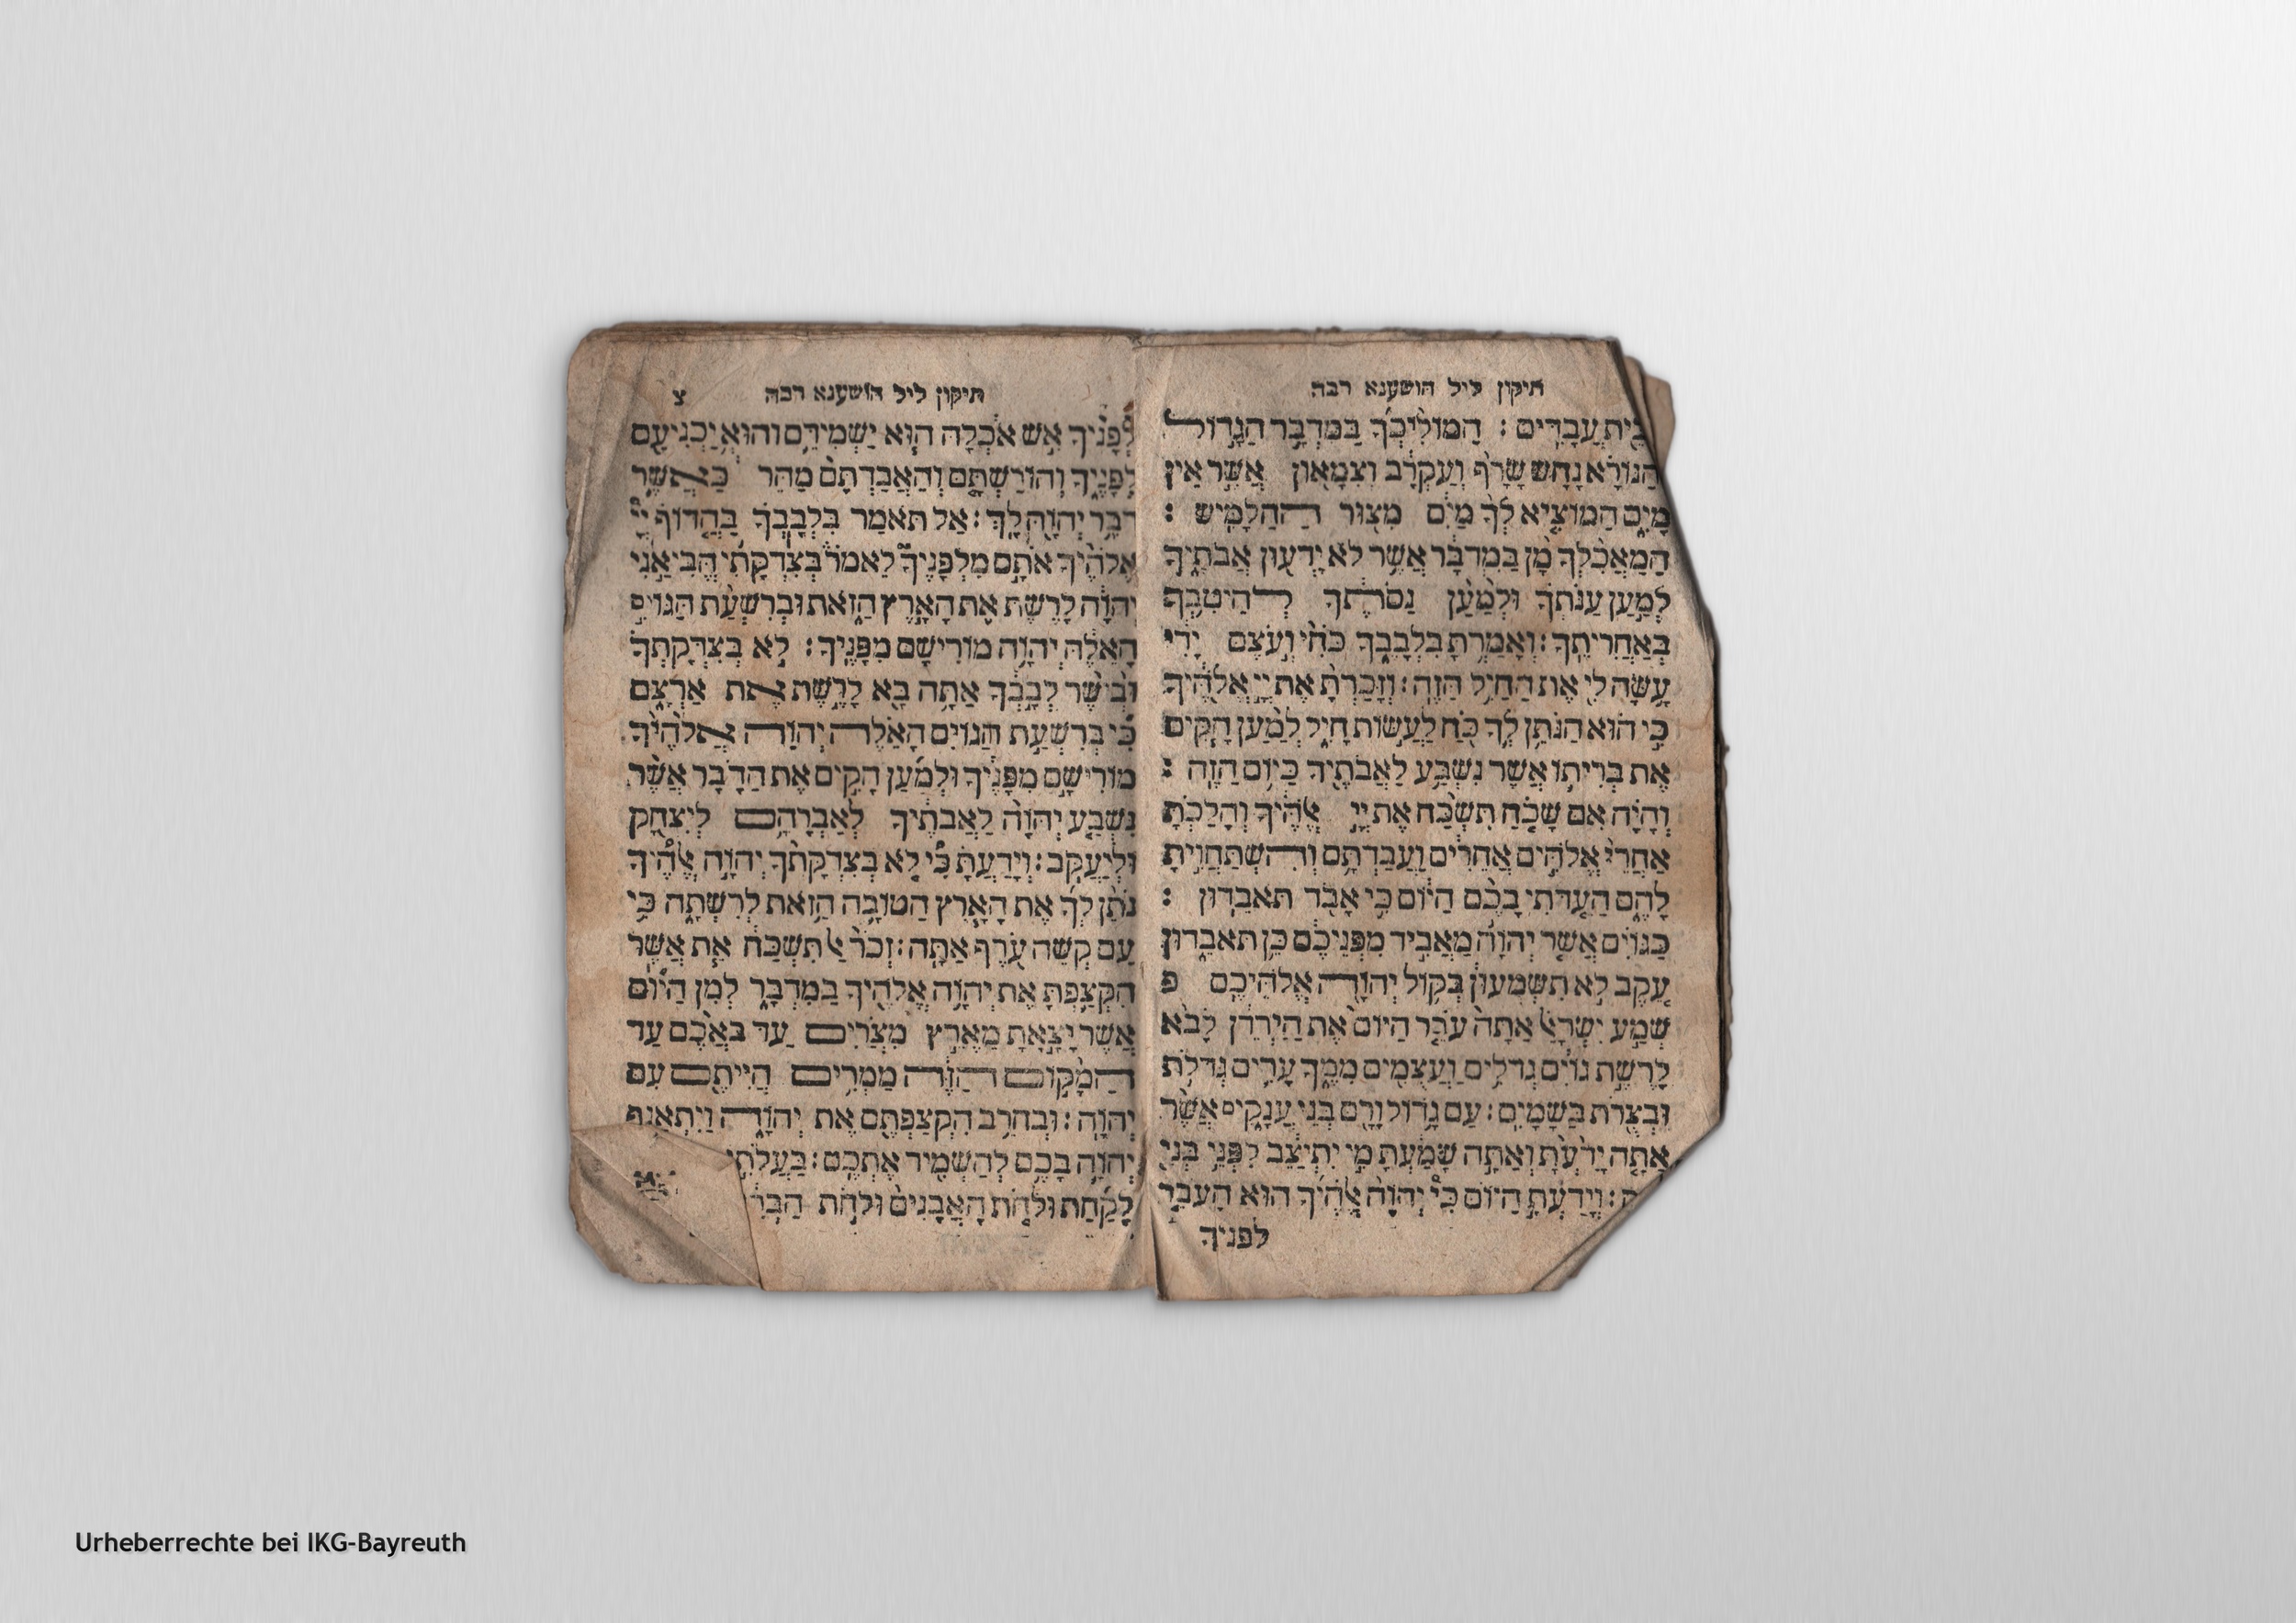 תיקון ליל הושענא רבה
בֵּית עֲבָדִים׃ הַמּוֹלִיכְךָ בַּמִּדְבָּר הַגָּדוֹל
הַנּוֹרָא נָחָשׁ שָׂרָף וְעַקְרָב וְצִמָּאוֹן אֲשֶׁר אֵין
מָיִם הַמּוֹצִיא לְךָ מַיִם מִצּוּר הַחַלָּמִישׁ׃
הַמַּאֲכִלְךָ מָן בַּמִּדְבָּר אֲשֶׁר לֹא יָדְעוּן אֲבֹתֶיךָ
לְמַעַן עַנֹּתְךָ וּלְמַעַן נַסֹּתֶךָ לְהֵיטִבְךָ
בְּאַחֲרִיתֶךָ׃ וְאָמַרְתָּ בִּלְבָבֶךָ כֹּחִי וְעֹצֶם יָדִי
עָשָׂה לִי אֶת הַחַיִל הַזֶּה׃ וְזָכַרְתָּ אֶת יְיָ אֱלֹהֶיךָ
כִּי הוּא הַנֹּתֵן לְךָ כֹּחַ לַעֲשׂוֹת חָיִל לְמַעַן הָקִים
אֶת בְּרִיתוֹ אֲשֶׁר נִשְׁבַּע לַאֲבֹתֶיךָ כַּיּוֹם הַזֶּה׃
וְהָיָה אִם שָׁכֹחַ תִּשְׁכַּח אֶת יְיָ אֱלֹהֶיךָ וְהָלַכְתָּ
אַחֲרֵי אֱלֹהִים אֲחֵרִים וַעֲבַדְתָּם וְהִשְׁתַּחֲוִיתָ
לָהֶם הַעִדֹתִי בָכֶם הַיּוֹם כִּי אָבֹד תֹּאבֵדוּן׃
כַּגּוֹיִם אֲשֶׁר יְהוָה מַאֲבִיד מִפְּנֵיכֶם כֵּן תֹּאבֵדוּן
עֵקֶב לֹא תִשְׁמְעוּן בְּקוֹל יְהוָה אֱלֹהֵיכֶם פ
שְׁמַע יִשְׂרָאֵל אַתָּה עֹבֵר הַיּוֹם אֶת הַיַּרְדֵּן לָבֹא
לָרֶשֶׁת גּוֹיִם גְּדֹלִים וַעֲצֻמִים מִמֶּךָּ עָרִים גְּדֹלֹת
וּבְצֻרֹת בַּשָּׁמָיִם׃ עַם גָּדוֹל וָרָם בְּנֵי עֲנָקִים אֲשֶׁר
אַתָּה יָדַעְתָּ וְאַתָּה שָׁמַעְתָּ מִי יִתְיַצֵּב לִפְנֵי בְּנֵי
וְיָדַעְתָּ הַיּוֹם כִּי יְהוָה אֱלֹהֶיךָ הוּא הָעֹבֵר
לפניך
תיקון ליל הושענא רבה צ
לְפָנֶיךָ אֵשׁ אֹכְלָה הוּא יַשְׁמִידֵם וְהוּא יַכְנִיעֵם
לְפָנֶיךָ וְהוֹרַשְׁתָּם וְהַאֲבַדְתָּם מַהֵר כַּאֲשֶׁר
דִּבֶּר יְהוָה לָךְ׃ אַל תֹּאמַר בִּלְבָבְךָ בַּהֲדֹוף יְיָ
אֱלֹהֶיךָ אֹתָם מִלְּפָנֶיךָ לֵאמֹר בְּצִדְקָתִי הֱבִיאַנִי
יְהוָה לָרֶשֶׁת אֶת הָאָרֶץ הַזֹּאת וּבְרִשְׁעַת הַגּוֹיִם
הָאֵלֶּה יְהוָה מוֹרִישָׁם מִפָּנֶיךָ׃ לֹא בְצִדְקָתְךָ
וּבְיֹשֶׁר לְבָבְךָ אַתָּה בָא לָרֶשֶׁת אֶת אַרְצָם
כִּי בְּרִשְׁעַת הַגּוֹיִם הָאֵלֶּה יְהוָה אֱלֹהֶיךָ
מוֹרִישָׁם מִפָּנֶיךָ וּלְמַעַן הָקִים אֶת הַדָּבָר אֲשֶׁר
נִשְׁבַּע יְהוָה לַאֲבֹתֶיךָ לְאַבְרָהָם לְיִצְחָק
וּלְיַעֲקֹב׃ וְיָדַעְתָּ כִּי לֹא בְצִדְקָתְךָ יְהוָה אֱלֹהֶיךָ
נֹתֵן לְךָ אֶת הָאָרֶץ הַטּוֹבָה הַזֹּאת לְרִשְׁתָּהּ כִּי
עַם קְשֵׁה עֹרֶף אָתָּה׃ זְכֹר אַל תִּשְׁכַּח אֵת אֲשֶׁר
הִקְצַפְתָּ אֶת יְהוָה אֱלֹהֶיךָ בַּמִּדְבָּר לְמִן הַיּוֹם
אֲשֶׁר יָצָאתָ מֵאֶרֶץ מִצְרַיִם עַד בֹּאֲכֶם עַד
הַמָּקוֹם הַזֶּה מַמְרִים הֱיִיתֶם עִם
יְהוָה׃ וּבְחֹרֵב הִקְצַפְתֶּם אֶת יְהוָה וַיִּתְאַנַּף
יְהוָה בָּכֶם לְהַשְׁמִיד אֶתְכֶם׃ בַּעֲלֹתִי
לָקַחַת לוּחֹת הָאֲבָנִים לוּחֹת
Urheberrechte bei IKG-Bayreuth